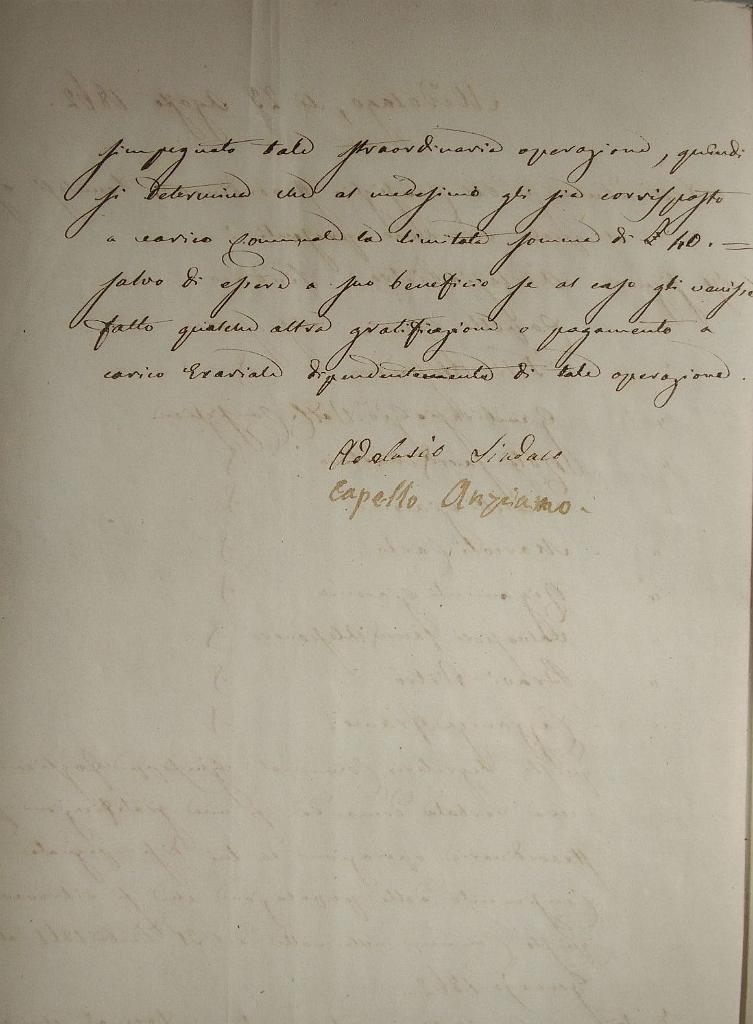 simpegnato tale straordinaria operazione, quindi
si determina che al medesimo gli sia corrisposto
a carico Comunale la limitata somma di £ 40. =
salvo di essere a suo beneficio se al caso gli venisse
fatto qualche altra gratificazione o pagamento a
carico Erariale dipendentemente di tale operazione.
Adelasio Sindaco
Capello Anziamo.